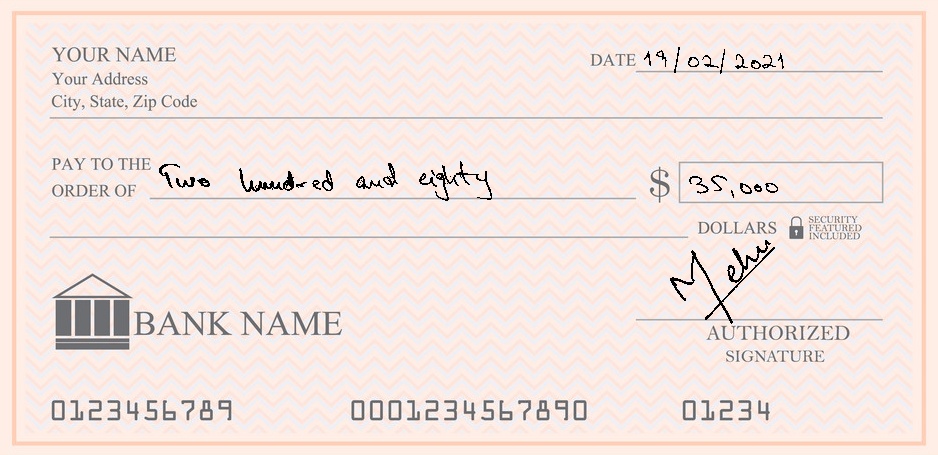 YOUR NAME
Your Address
City, State, Zip Code
DATE 19/02/2021
PAY TO THE
ORDER OF Two hundred and eighty $ 35,000
DOLLARS SECURITY
FEATURED
INCLUDED
Mehu
BANK NAME
AUTHORIZED
SIGNATURE
0123456789 0001234567890 01234